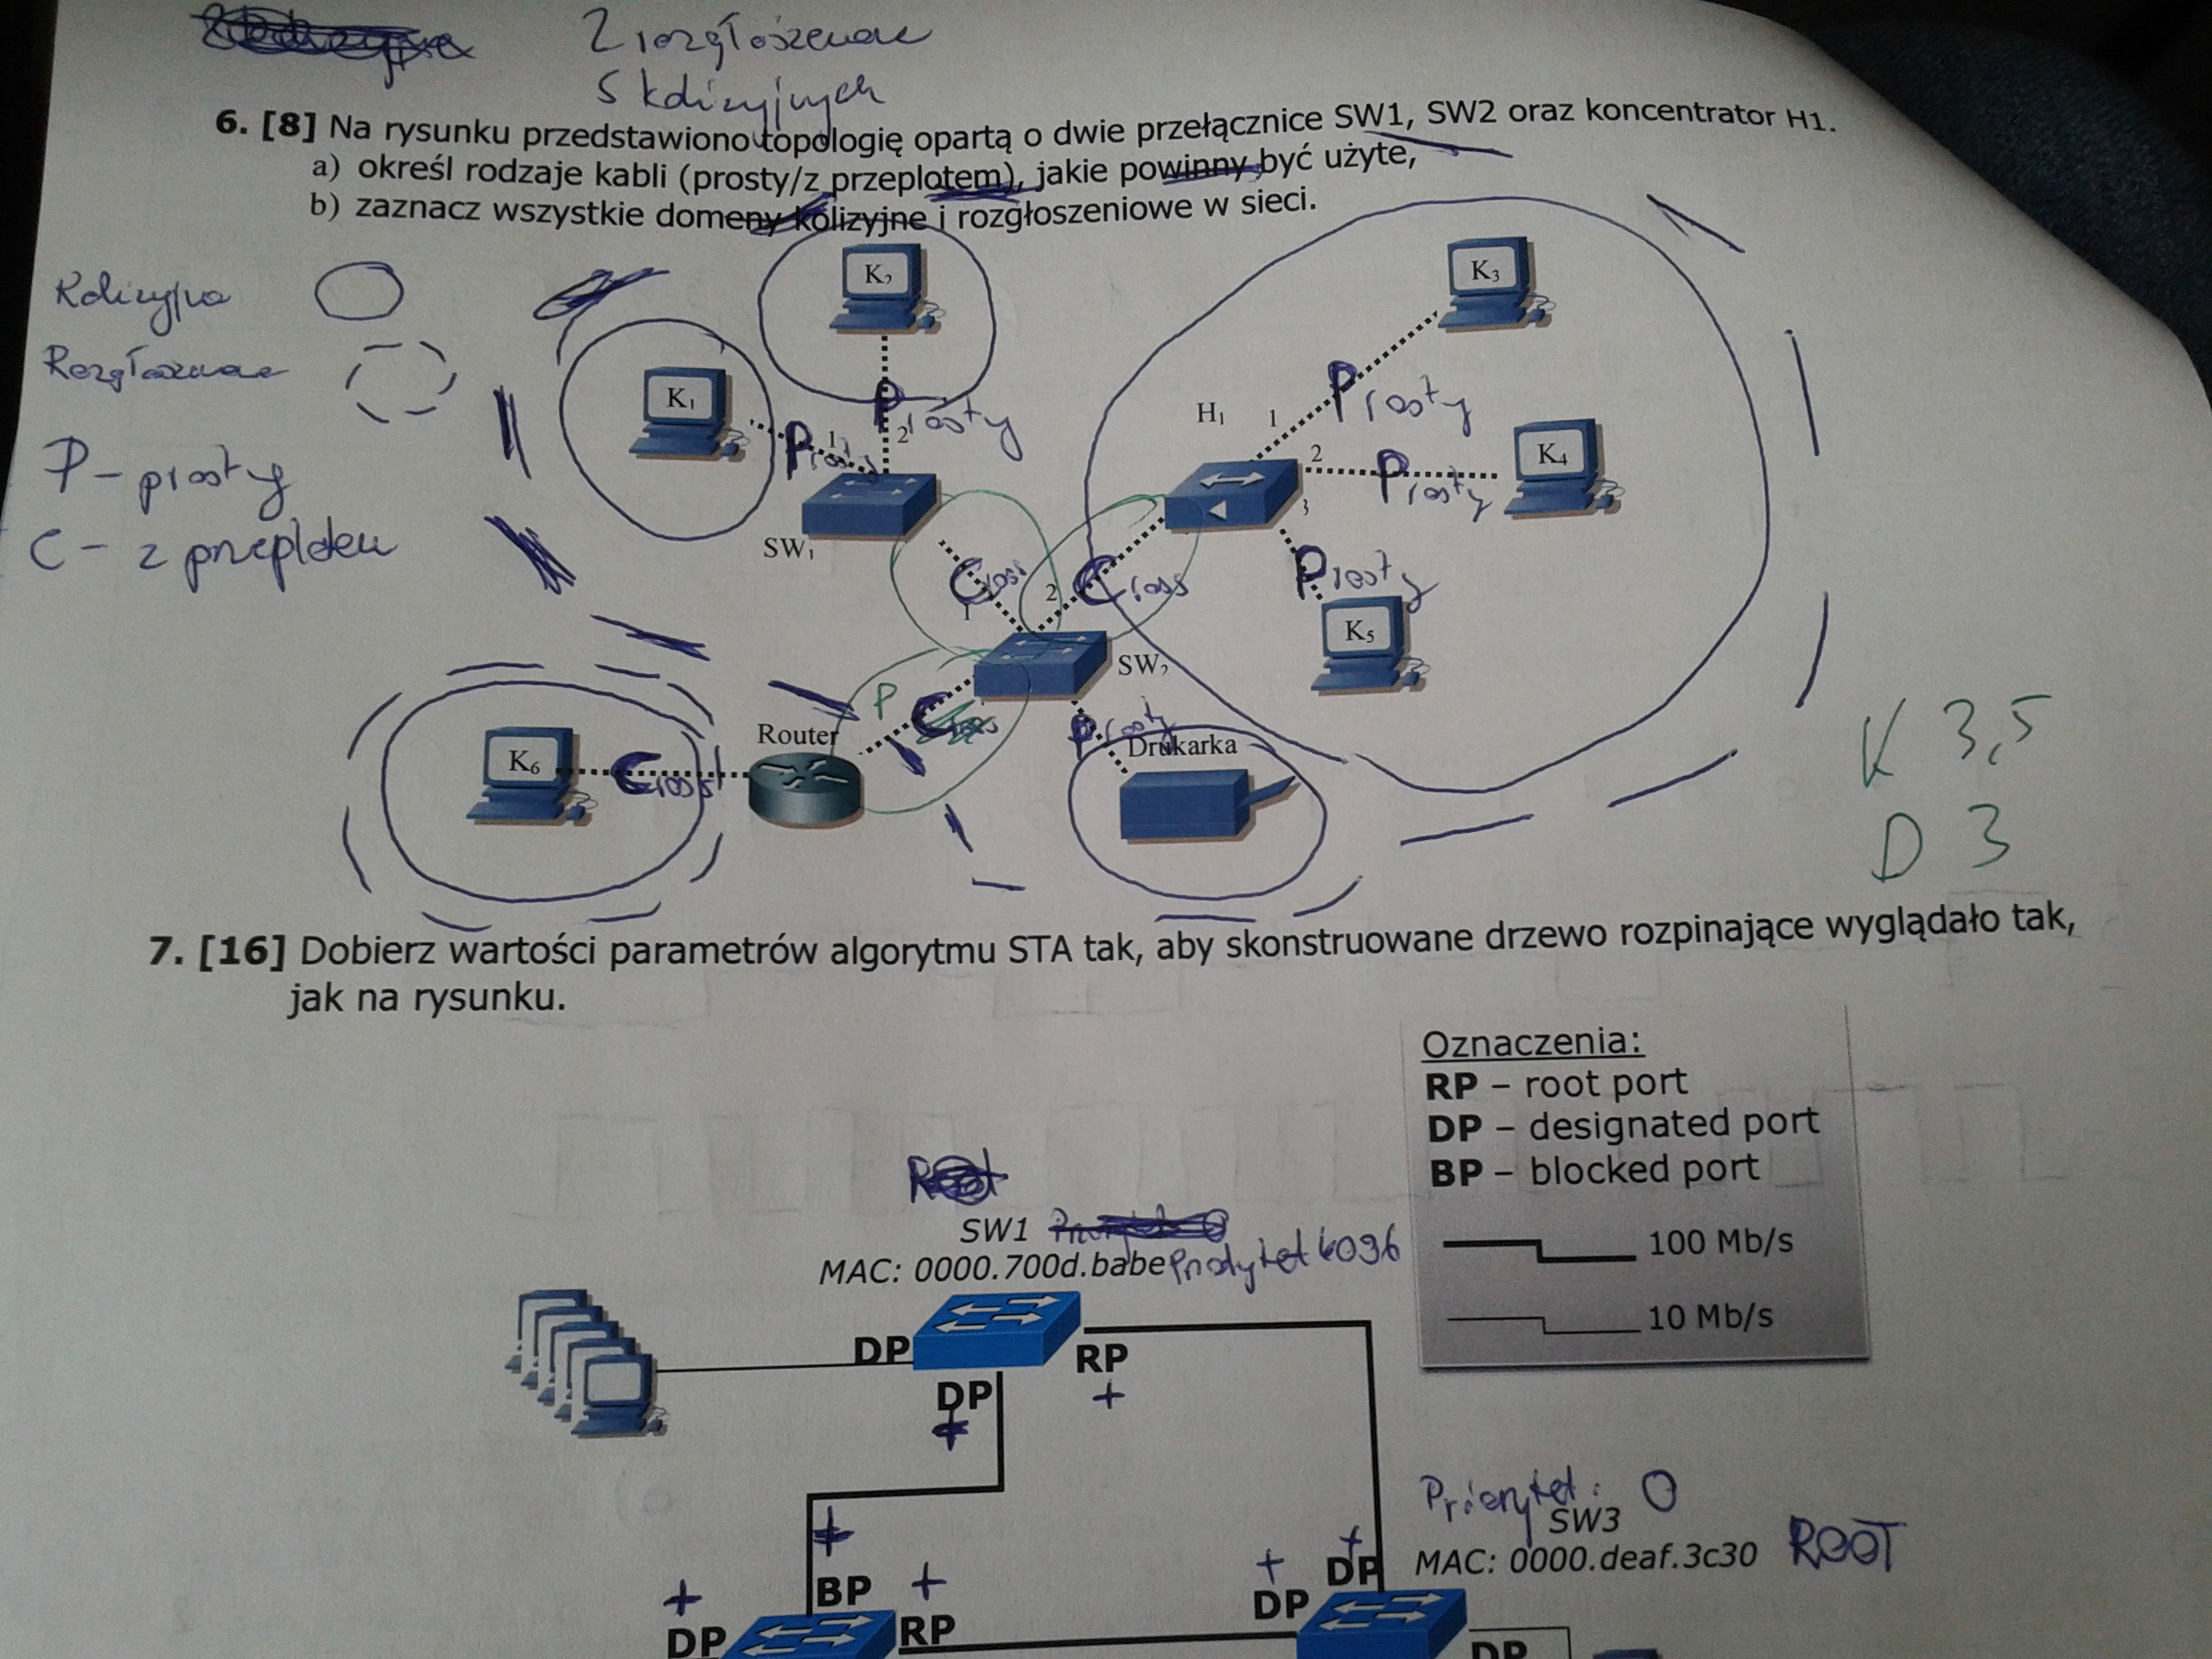 2 rozgłoszeniowe
5 kolizyjnych
6. [8] Na rysunku przedstawiono topologię opartą o dwie przełącznice SW1, SW2 oraz koncentrator H1.
a) określ rodzaje kabli (prosty/z przeplotem), jakie powinny być użyte,
b) zaznacz wszystkie domeny kolizyjne i rozgłoszeniowe w sieci.
Kolizyjna
P - prosty
C - z przeplotem
K2
K3
K1
Prosty
1
Prosty
2
H1
1
Prosty
2
Prosty
K4
3
SW1
Cross
1
2
Cross
Prosty
K5
SW2
P
Cross
Prosty
Router
Drukarka
K6
Cross
K 3,5
D 3
7. [16] Dobierz wartości parametrów algorytmu STA tak, aby skonstruowane drzewo rozpinające wyglądało tak,
jak na rysunku.
Oznaczenia:
RP – root port
DP – designated port
BP – blocked port
100 Mb/s
10 Mb/s
Root
SW1
MAC: 0000.700d.babe Priorytet 4096
DP
RP
+
DP
+
Priorytet: 0
SW3
MAC: 0000.deaf.3c30 ROOT
+
+
+
DP
DP
+
BP
+
DP
RP
DP